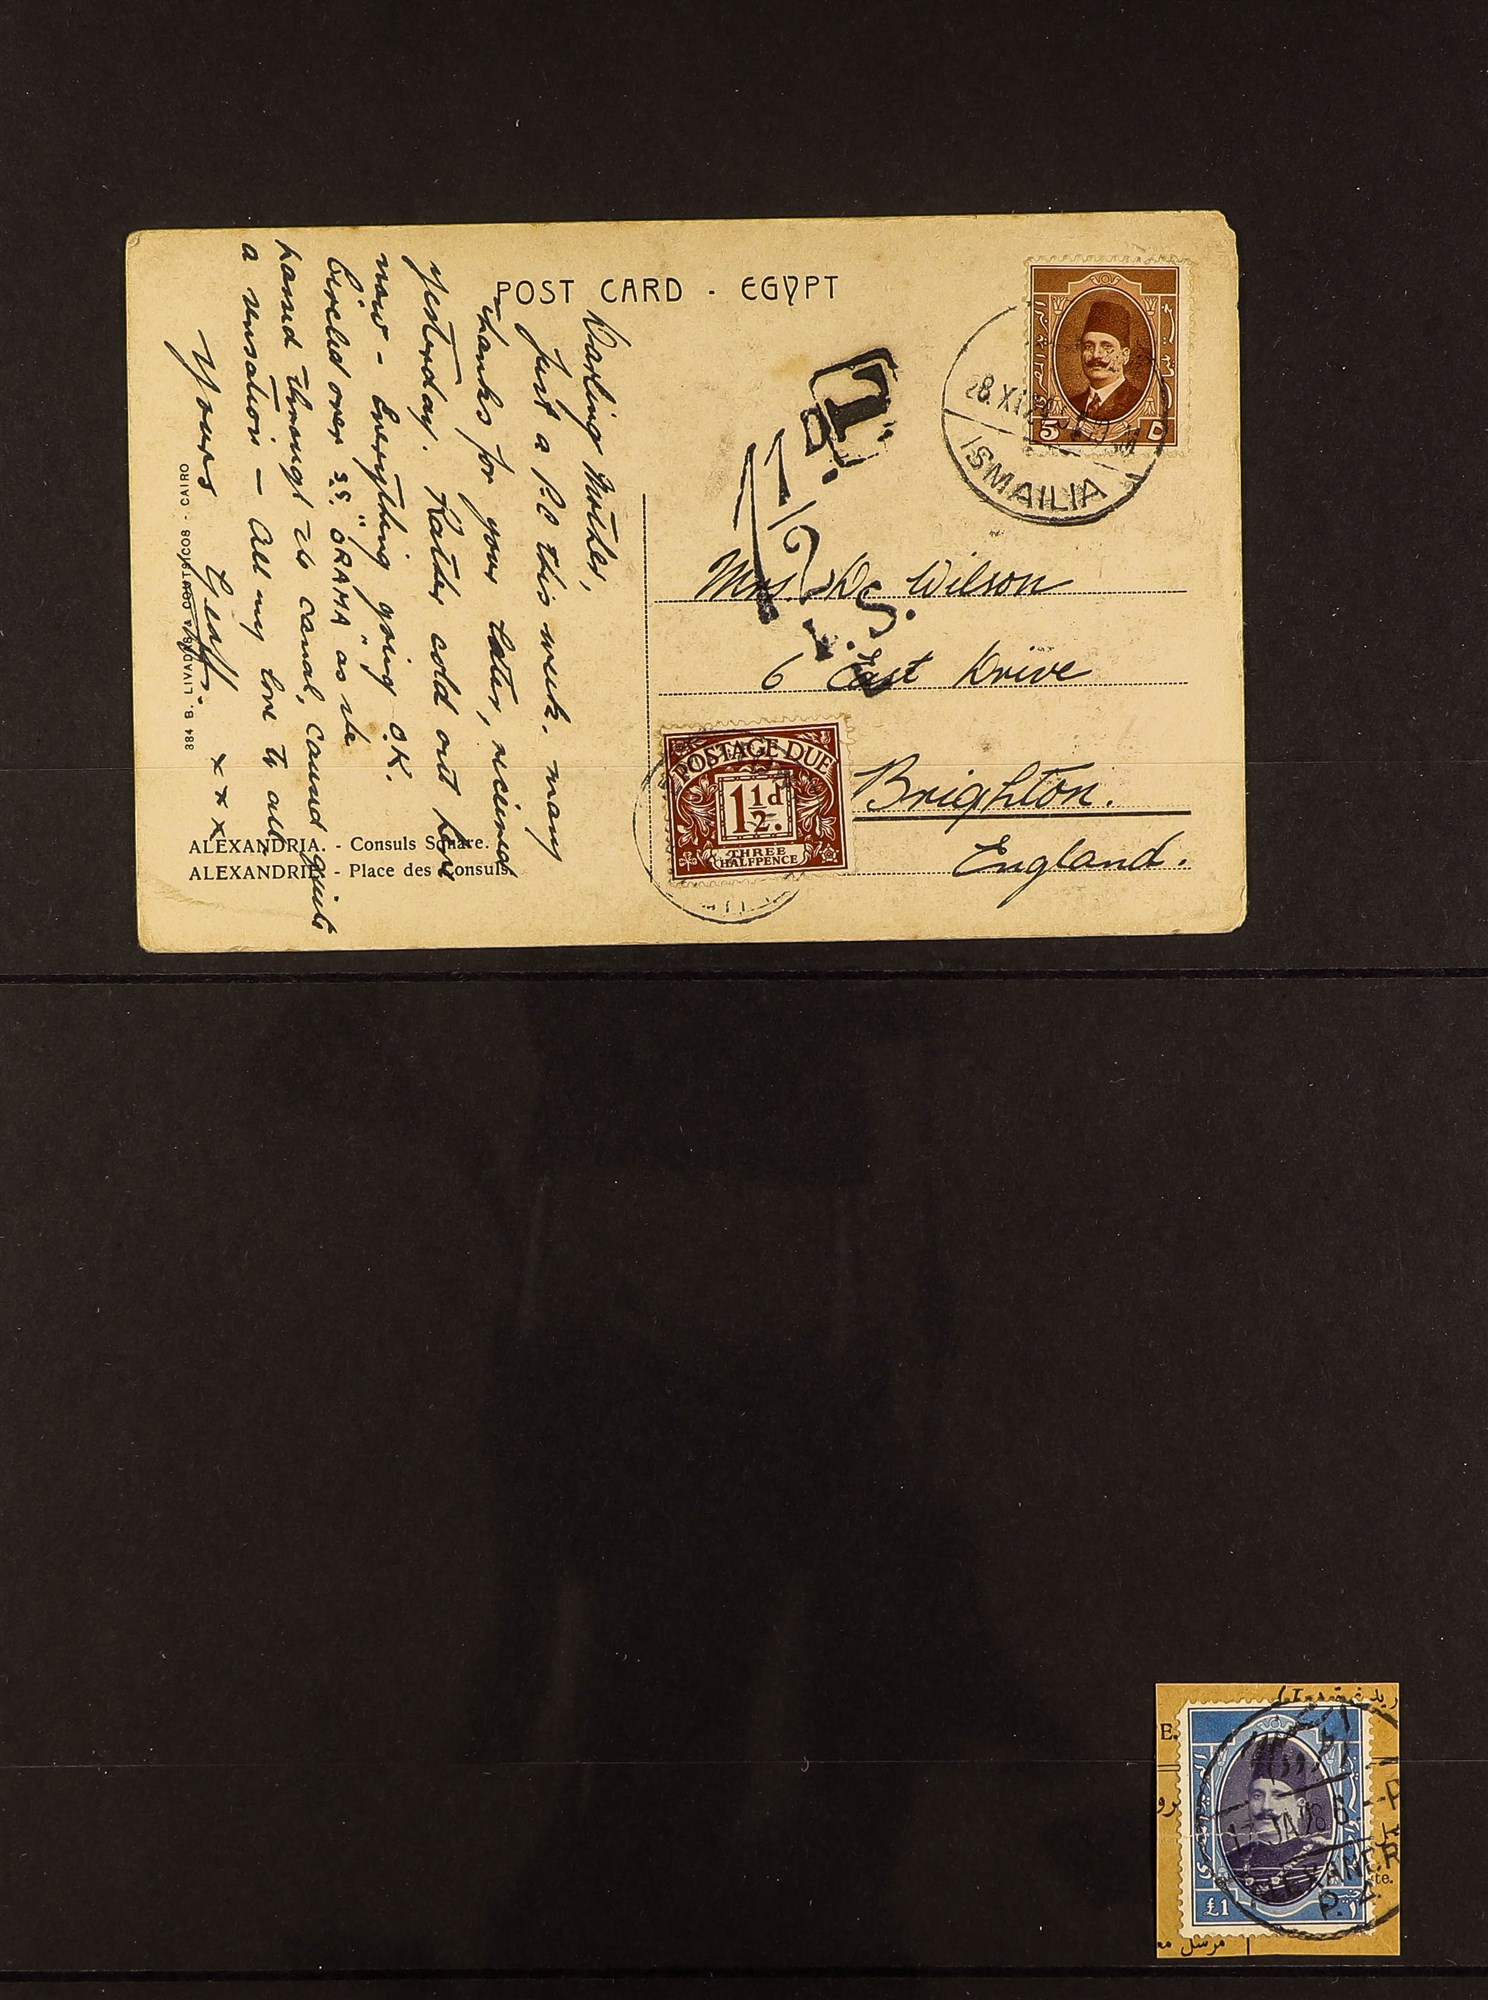 POST CARD - EGYPT
Darling Mother,
Just a P.C this week. Many
thanks for your letter, received
yesterday. Rather cold out here
now - Everything going O.K.
Circled over S.S. "ORAMA" as she
passed through the canal, caused quite
a sensation - All my love to all.
Yours
Geoff.
x x x
384 B. LIVADAS & COUTSICOS - CAIRO
ALEXANDRIA. - Consuls Square.
ALEXANDRIE - Place des Consuls.
T
1½D.
I.S.
5
28.XI
ISMAILIA
Mrs. Wilson
6 East Drive
Brighton.
England.
POSTAGE DUE
1½d.
THREE
HALFPENCE
E.
JA 28 6 - P
P.
te.
£1
مرسل